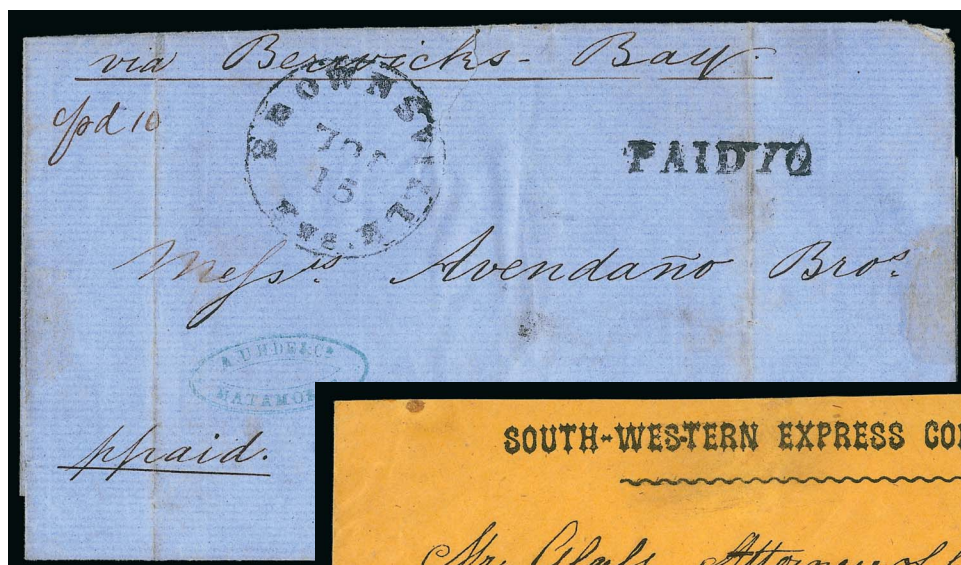 via Berwicks - Bay.
ppd 10
BROWNSVILLE
15
PAID 10
Messrs Avendaño Bros.
A. UHDE & Co
MATAMO
ppaid.
SOUTH-WESTERN EXPRESS CO
Mr. Attorney of